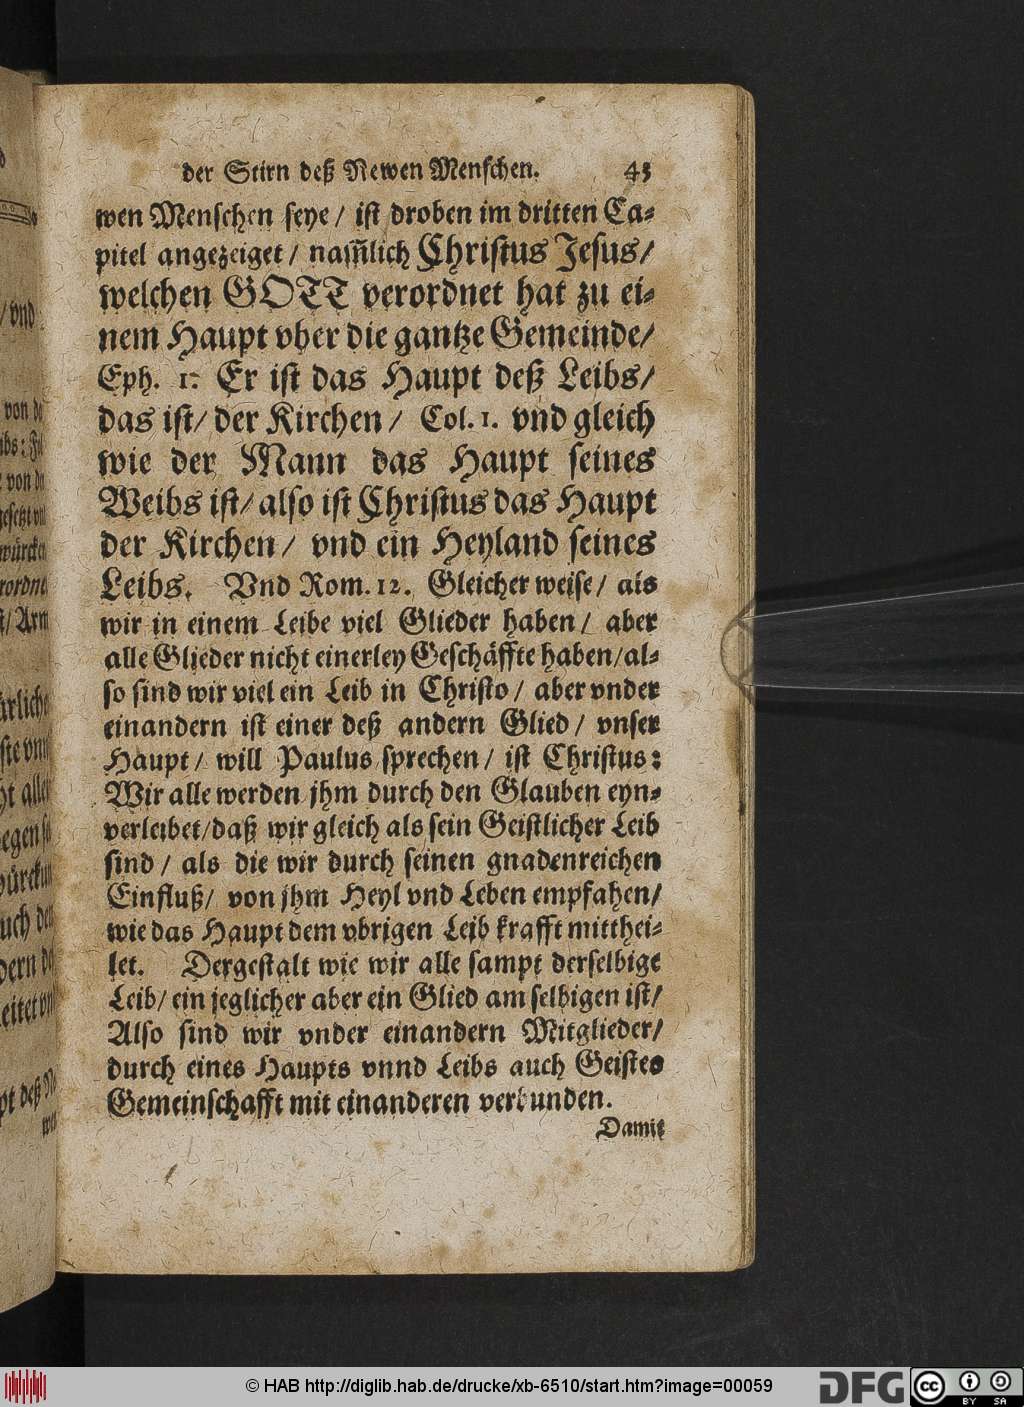 der Stirn deß Newen Menschen. 43
wen Menschen seye / ist droben im dritten Ca-
pitel angezeiget / nam̃lich Christus Jesus /
welchen GOTT verordnet hat zu ei-
nem Haupt vber die gantze Gemeinde /
Eph. 1. Er ist das Haupt deß Leibs /
das ist / der Kirchen / Col. 1. vnd gleich
wie der Mann das Haupt seines
Weibs ist / also ist Christus das Haupt
der Kirchen / vnd ein Heyland seines
Leibs. Vnd Rom. 12. Gleicher weise / als
wir in einem Leibe viel Glieder haben / aber
alle Glieder nicht einerley Geschäffte haben / al-
so sind wir viel ein Leib in Christo / aber vnder
einandern ist einer deß andern Glied / vnser
Haupt / will Paulus sprechen / ist Christus:
Wir alle werden jhm durch den Glauben eyn-
verleibet / daß wir gleich als sein Geistlicher Leib
sind / als die wir durch seinen gnadenreichen
Einfluß / von jhm Heyl vnd Leben empfahen /
wie das Haupt dem vbrigen Leib krafft mitthei-
let. Dergestalt wie wir alle sampt derselbige
Leib / ein jeglicher aber ein Glied am selbigen ist /
Also sind wir vnder einandern Mitglieder /
durch eines Haupts vnnd Leibs auch Geistes
Gemeinschafft mit einanderen verbunden.
Damit
© HAB http://diglib.hab.de/drucke/xb-6510/start.htm?image=00059
DFG
cc
BY SA